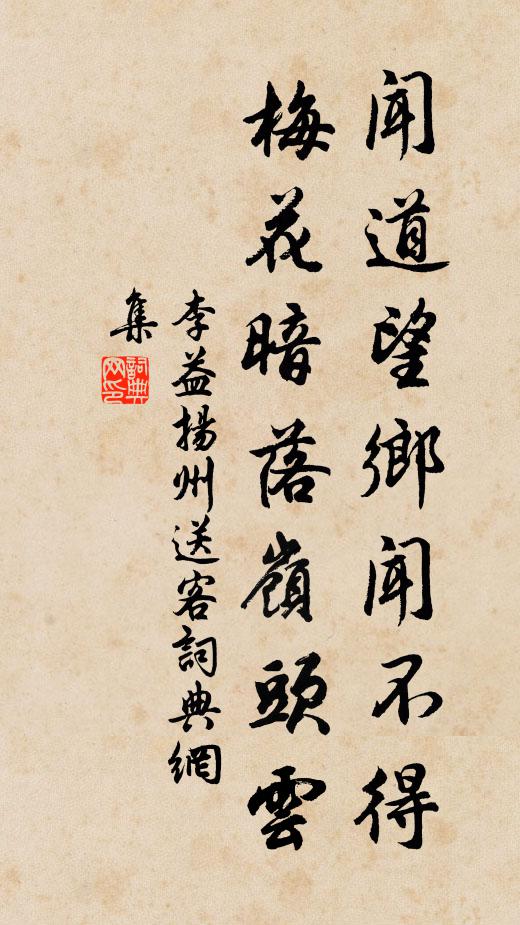 聞道望鄉聞不得
梅花暗落嶺頭雲
李益揚州送客詞典網
集
詞典网印